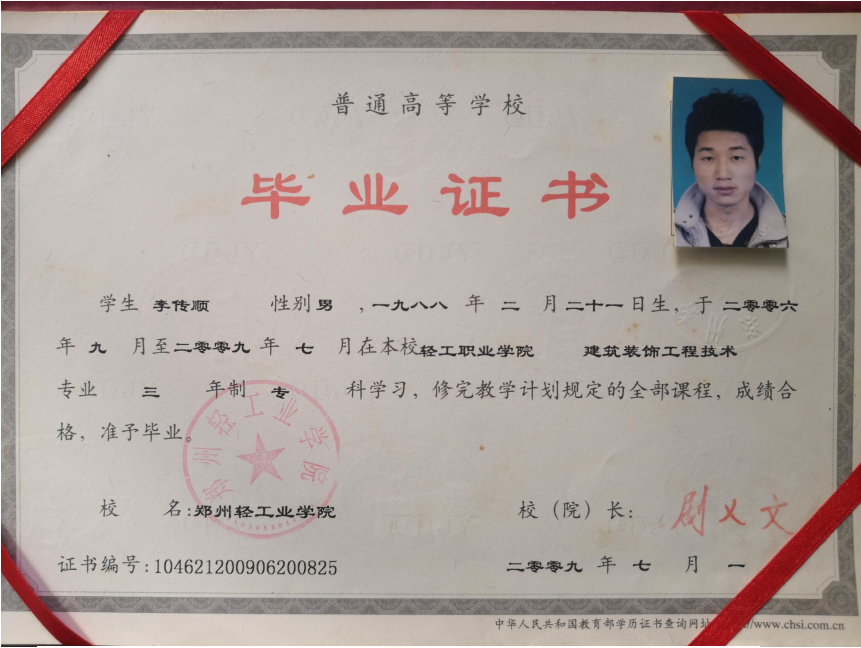 普通高等学校
毕业证书
学生 李传顺 性别 男 ,一九八八 年 二 月 二十一 日生, 于 二零零六
年 九 月至 二零零九 年 七 月在本校 轻工职业学院 建筑装饰工程技术
专业 三 年制 专 科学习, 修完教学计划规定的全部课程, 成绩合
格, 准予毕业。
郑州轻工业学院
校 名: 郑州轻工业学院 校(院)长: 剧义文
证书编号: 104621200906200825 二零零九 年 七 月 一
中华人民共和国教育部学历证书查询网址 //www.chsi.com.cn